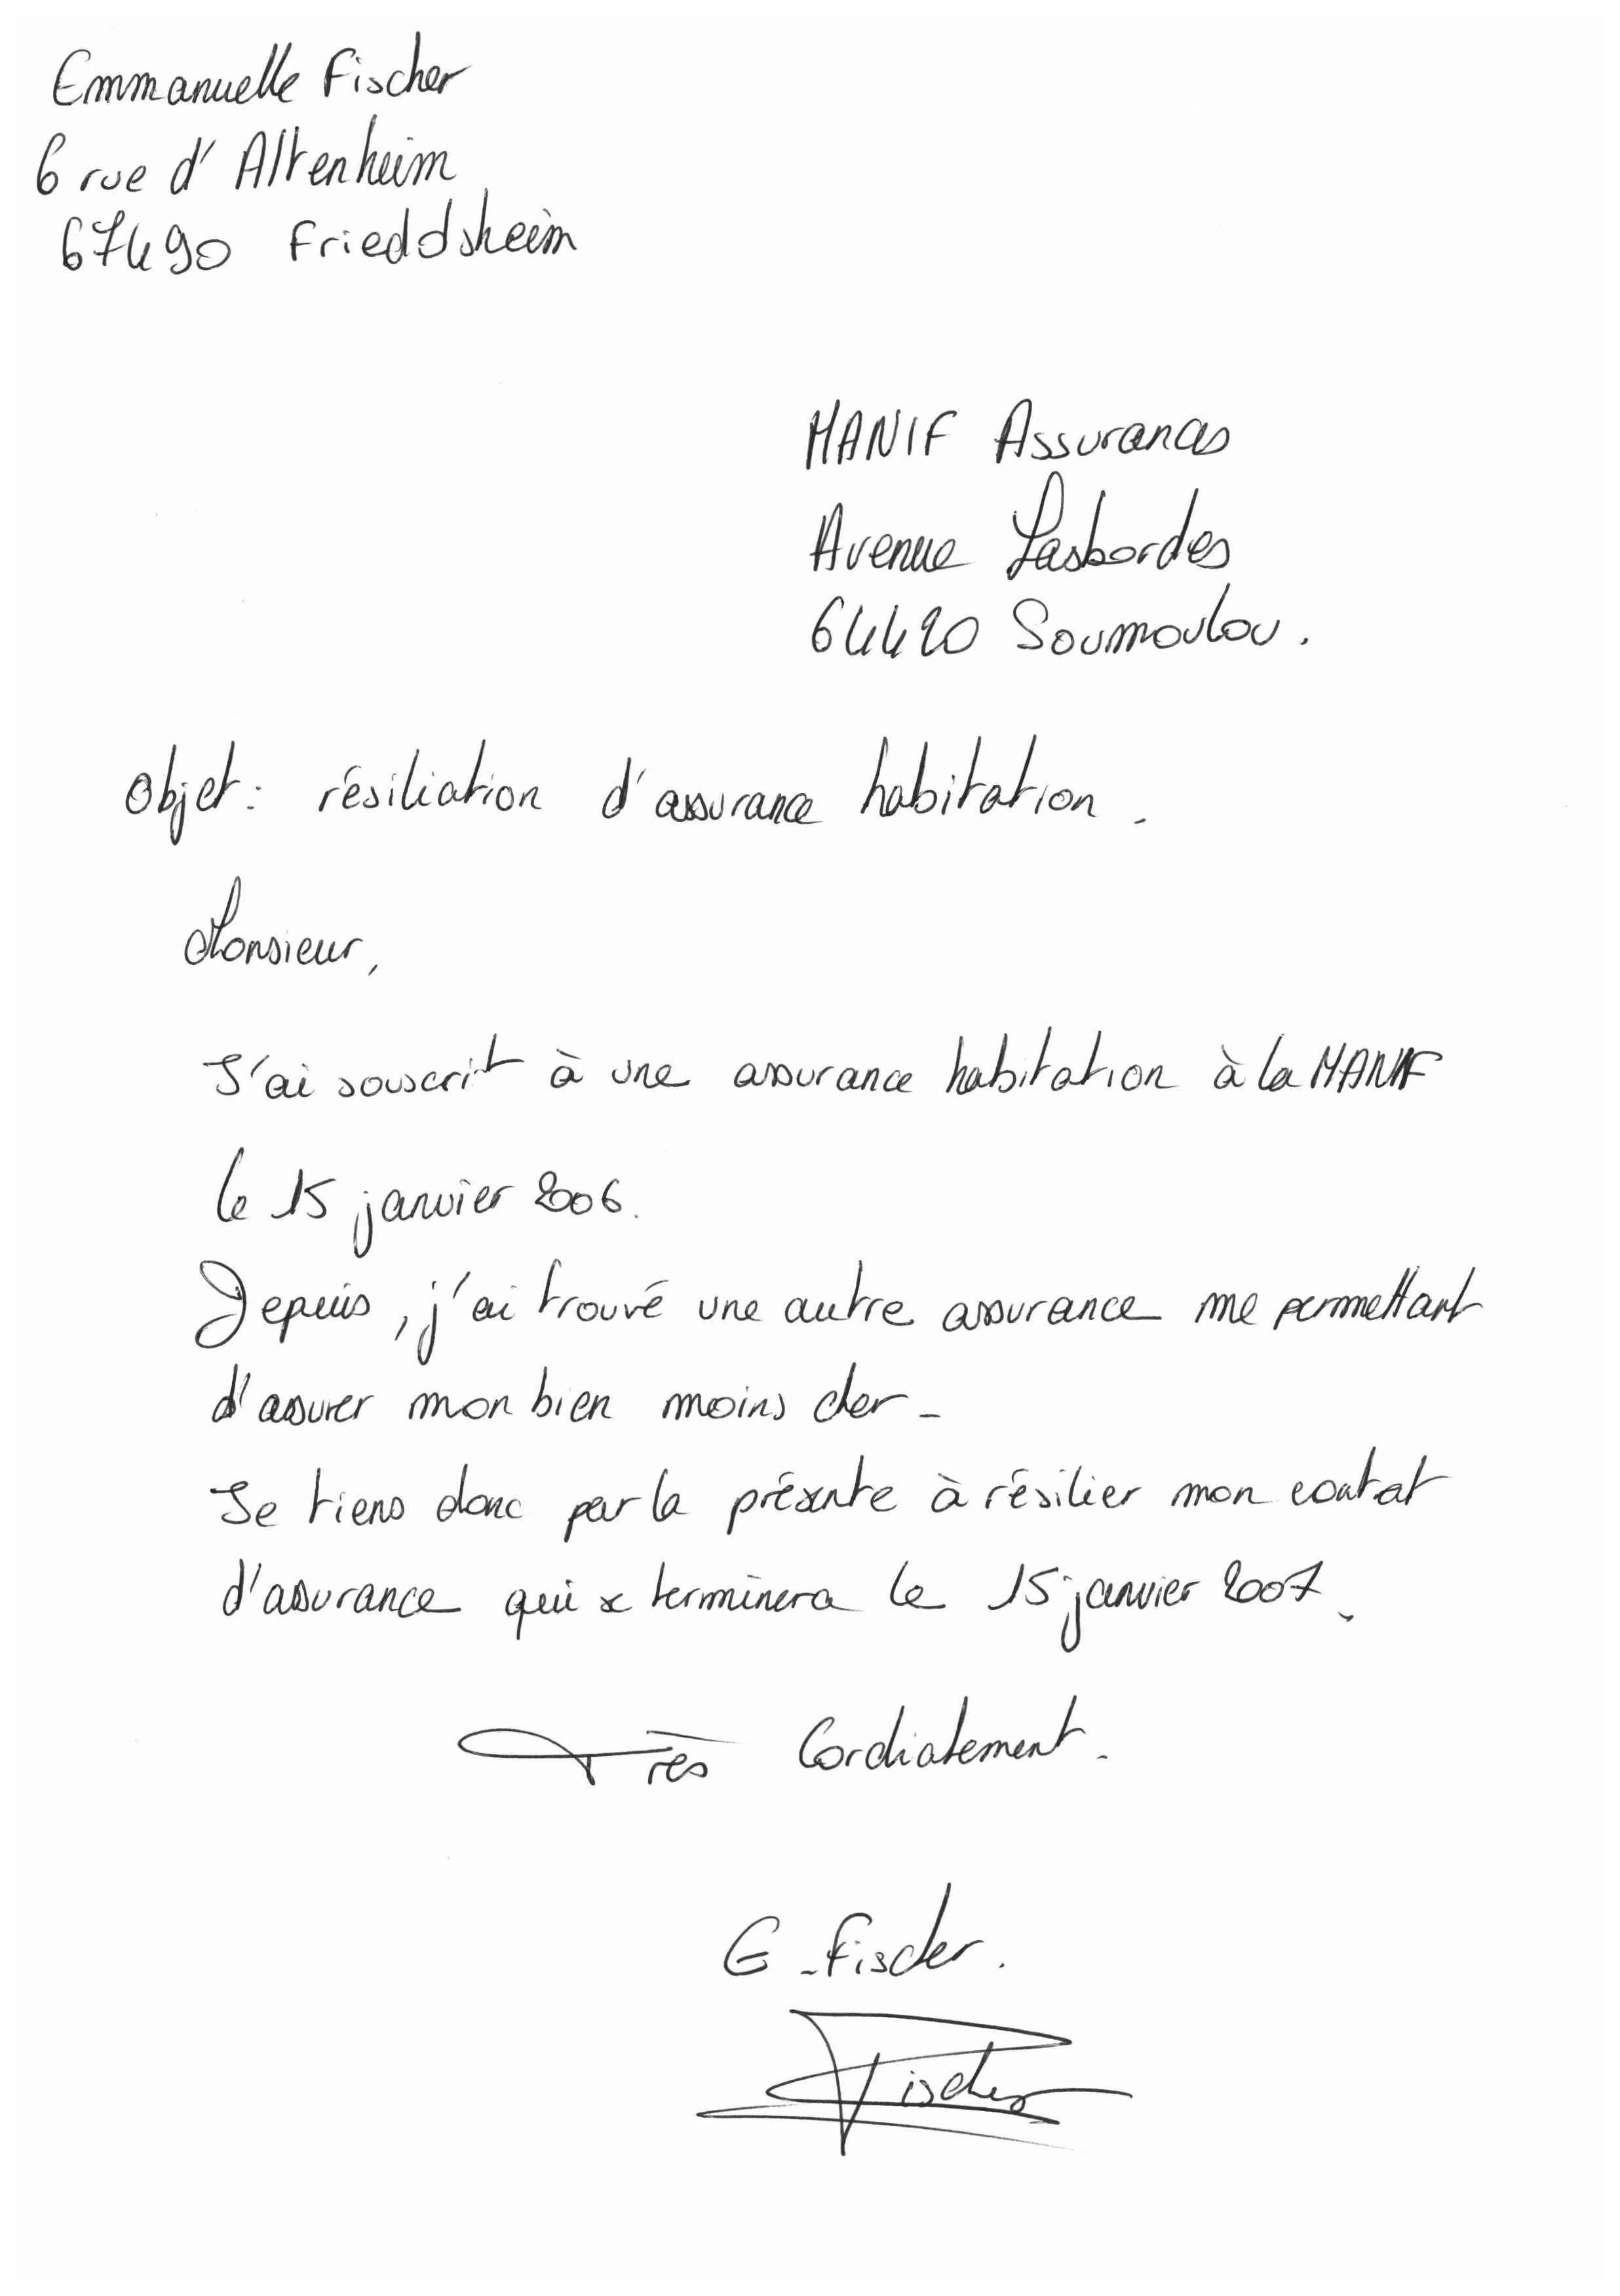 Emmanuelle Fischer
6 rue d'Altenheim
67490 Frieddsheim
MANIF Assurances
Avenue Lasbordes
64420 Soumoulou.
Objet : résiliation d'assurance habitation.
Monsieur,
J'ai souscrit à une assurance habitation à la MANIF
le 15 janvier 2006.
Depuis, j'ai trouvé une autre assurance me permettant
d'assurer mon bien moins cher.
Je tiens donc par la présente à résilier mon contrat
d'assurance qui se terminera le 15 janvier 2007.
Très Cordialement.
E. Fischer.
Fischer